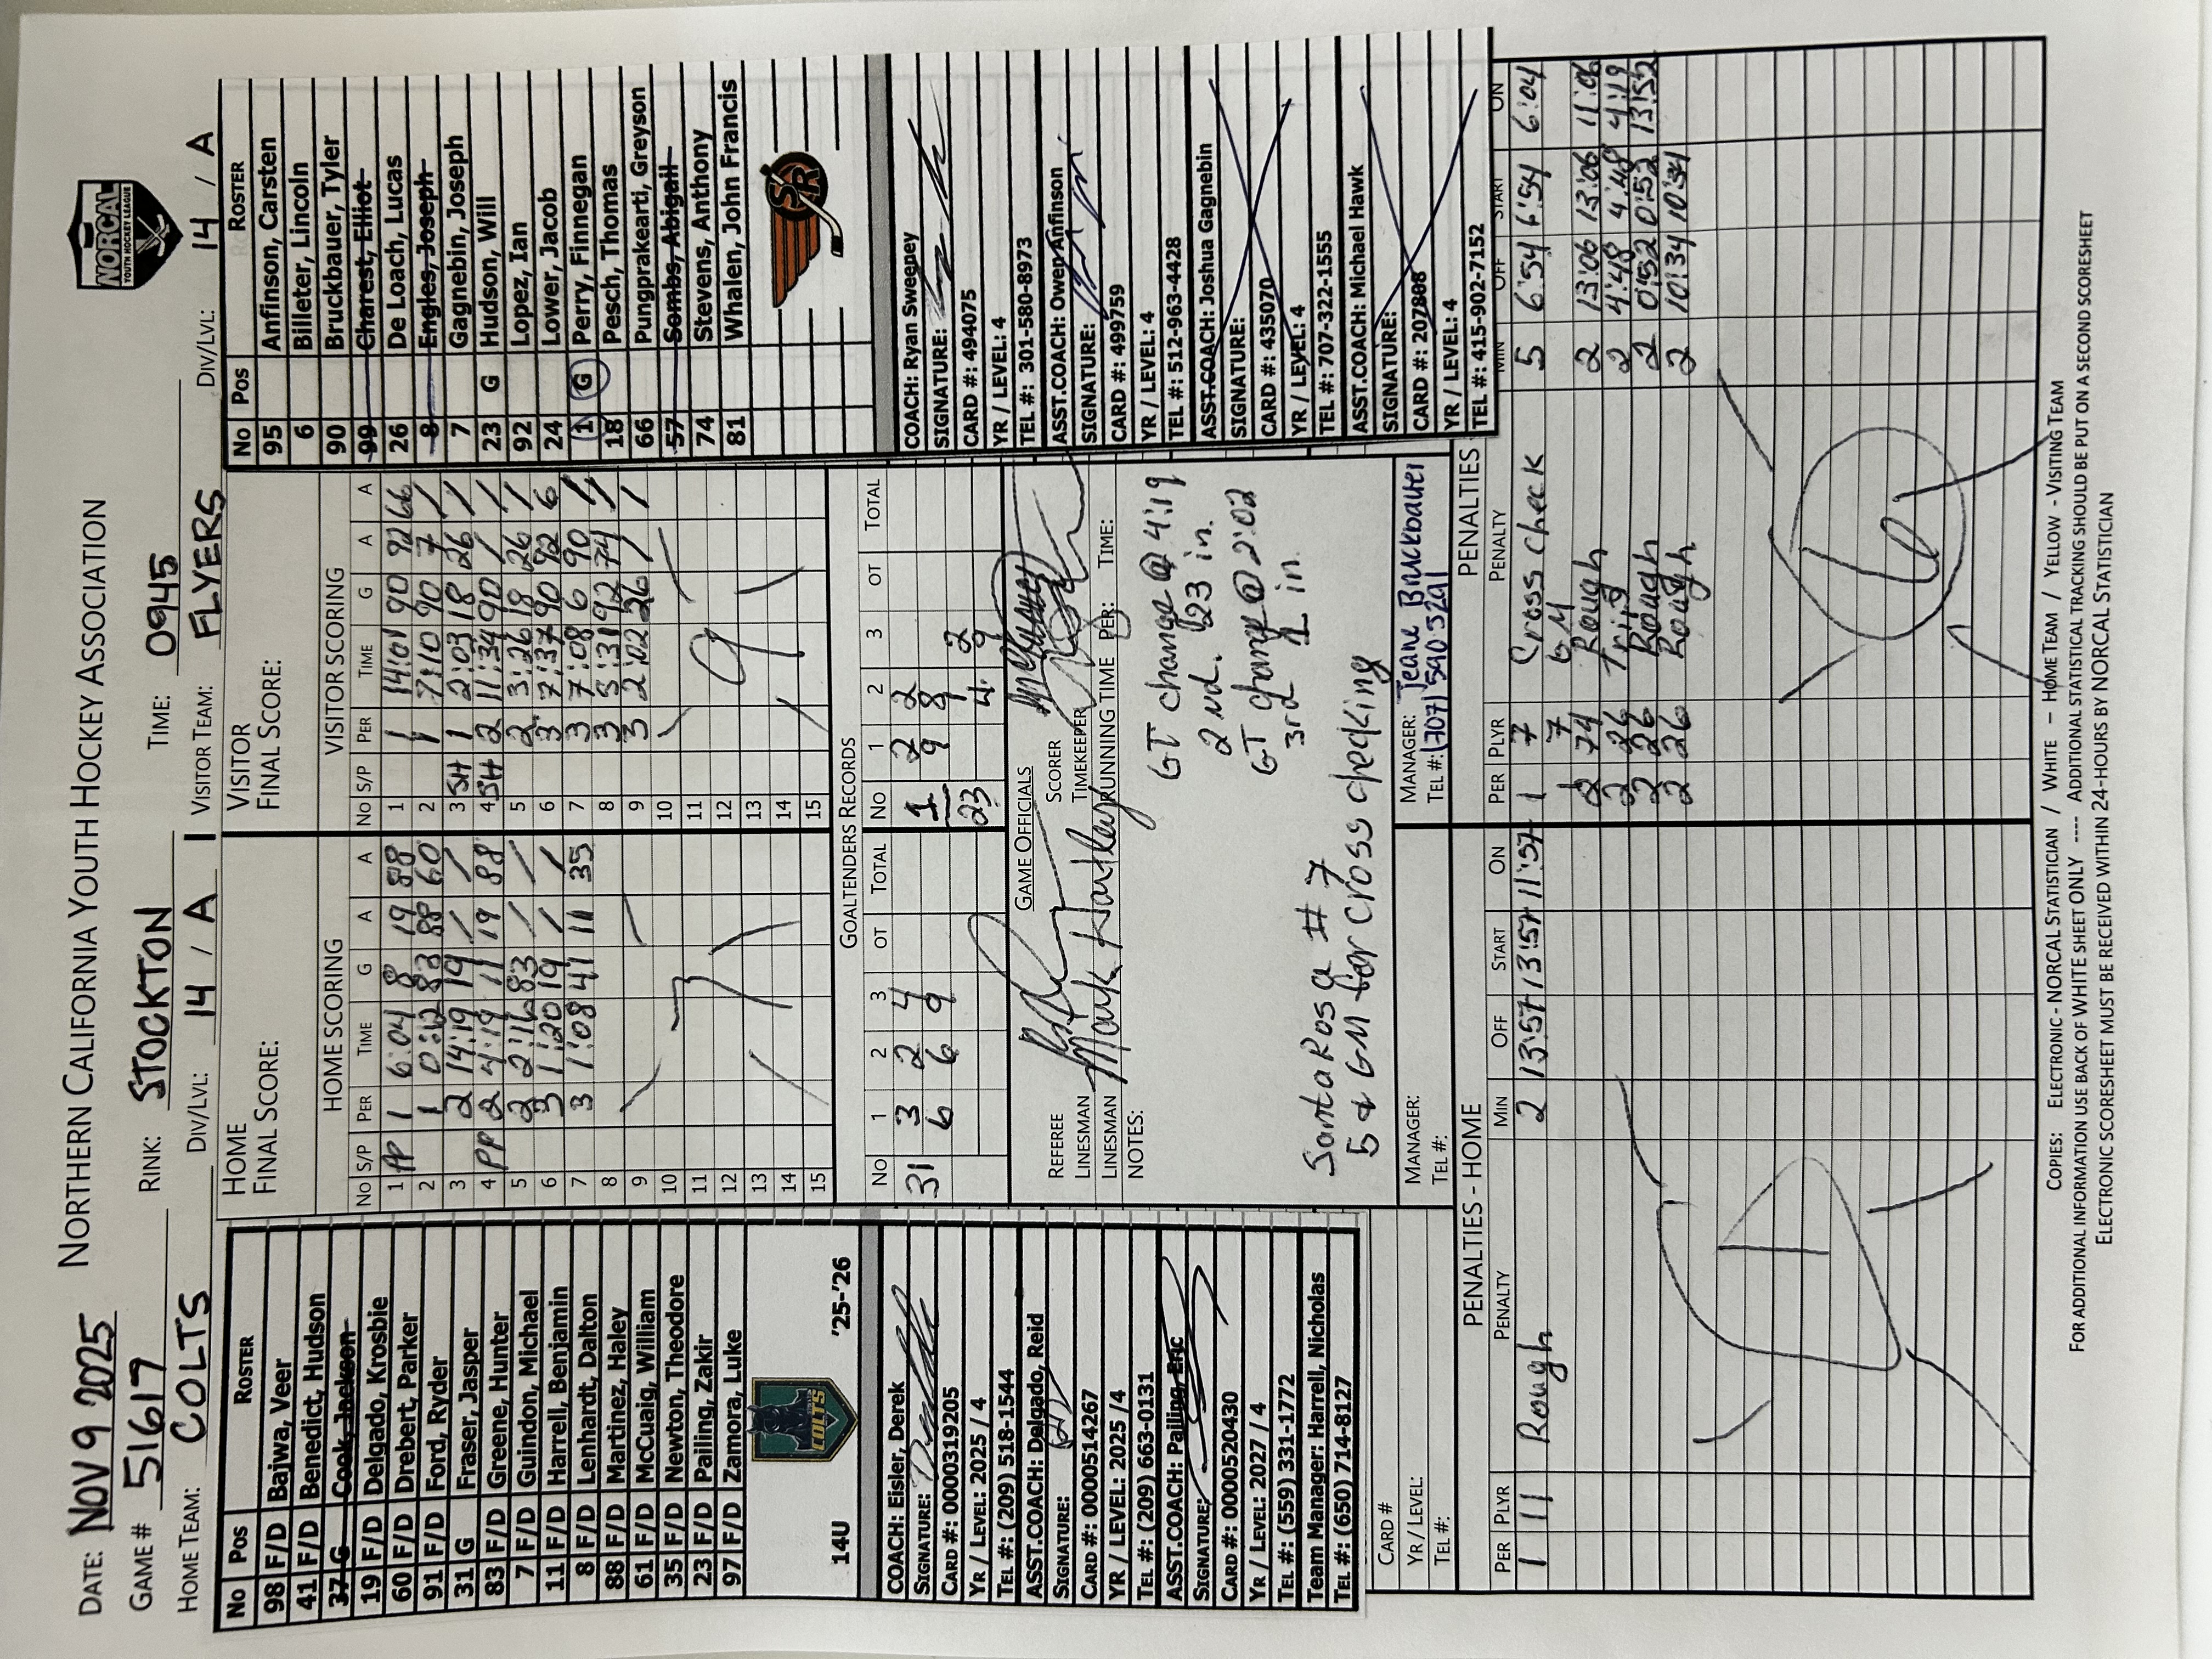 NORTHERN CALIFORNIA YOUTH HOCKEY ASSOCIATION
NORCAL
YOUTH HOCKEY LEAGUE
DATE: NOV 9 2025
GAME # 51617 RINK: STOCKTON TIME: 0945
HOME TEAM: COLTS DIV/LVL: 14 / A VISITOR TEAM: FLYERS DIV/LVL: 14 / A
No Pos ROSTER
98 F/D Bajwa, Veer
41 F/D Benedict, Hudson
37 G Cook, Jackson
19 F/D Delgado, Krosbie
60 F/D Drebert, Parker
91 F/D Ford, Ryder
31 G Fraser, Jasper
83 F/D Greene, Hunter
7 F/D Guindon, Michael
11 F/D Harrell, Benjamin
8 F/D Lenhardt, Dalton
88 F/D Martinez, Haley
61 F/D McCuaig, William
35 F/D Newton, Theodore
23 F/D Pailing, Zakir
97 F/D Zamora, Luke
14U COLTS '25-'26
COACH: Eisler, Derek
SIGNATURE:
CARD #: 0000319205
YR / LEVEL: 2025 / 4
TEL #: (209) 518-1544
ASST.COACH: Delgado, Reid
SIGNATURE:
CARD #: 0000514267
YR / LEVEL: 2025 /4
TEL #: (209) 663-0131
ASST.COACH: Pailing, Eric
SIGNATURE:
CARD #: 0000520430
YR / LEVEL: 2027 / 4
TEL #: (559) 331-1772
Team Manager: Harrell, Nicholas
TEL #: (650) 714-8127
CARD #
YR / LEVEL:
TEL #:
HOME
FINAL SCORE:
HOME SCORING
No S/P PER TIME G A A
1 PP 1 6:04 8 19 88
2 1 0:12 83 88 60
3 2 14:19 19 / /
4 PP 2 4:19 11 19 88
5 2 2:16 83 / /
6 3 1:20 19 / /
7 3 1:08 41 11 35
8
9
10
11
12
13
14
15
7
VISITOR
FINAL SCORE:
VISITOR SCORING
No S/P PER TIME G A A
1 1 14:01 90 92 66
2 1 7:10 90 7 /
3 SH 1 2:03 18 26 /
4 SH 2 11:34 90 / /
5 2 3:26 18 26 /
6 3 7:37 90 92 6
7 3 7:08 6 90 /
8 3 5:31 92 74 /
9 3 2:02 26 / /
10
11
12
13
14
15
9
GOALTENDERS RECORDS
No 1 2 3 OT TOTAL No 1 2 3 OT TOTAL
31 3 2 4 1 2 2
6 6 9 9 8
23 1 2
4
GAME OFFICIALS
REFEREE SCORER
LINESMAN TIMEKEEPER
LINESMAN RUNNING TIME PER: TIME:
NOTES:
GT change @ 4:19
2nd. #23 in.
GT change @ 2:02
3rd 1 in
Santa Rosa # 7
5 & GM for cross checking
MANAGER:
TEL #:
MANAGER: Jeane Bruckbauer
TEL #: (707) 590 3291
No Pos ROSTER
95 Anfinson, Carsten
6 Billeter, Lincoln
90 Bruckbauer, Tyler
99 Charest, Elliot
26 De Loach, Lucas
8 Engles, Joseph
7 Gagnebin, Joseph
23 G Hudson, Will
92 Lopez, Ian
24 Lower, Jacob
1 G Perry, Finnegan
18 Pesch, Thomas
66 Pungprakearti, Greyson
57 Sombs, Abigail
74 Stevens, Anthony
81 Whalen, John Francis
SR
COACH: Ryan Sweepey
SIGNATURE:
CARD #: 494075
YR / LEVEL: 4
TEL #: 301-580-8973
ASST.COACH: Owen Anfinson
SIGNATURE:
CARD #: 499759
YR / LEVEL: 4
TEL #: 512-963-4428
ASST.COACH: Joshua Gagnebin
SIGNATURE:
CARD #: 435070
YR / LEVEL: 4
TEL #: 707-322-1555
ASST.COACH: Michael Hawk
SIGNATURE:
CARD #: 207808
YR / LEVEL: 4
TEL #: 415-902-7152
PENALTIES - HOME
PER PLYR PENALTY MIN OFF START ON
1 11 Rough 2 13:57 13:57 11:57
PENALTIES
PER PLYR PENALTY MIN OFF START ON
1 7 Cross check 5 6:54 6:54 6:04
7 GM
2 74 Rough 2 13:06 13:06 11:06
2 26 Trip 2 4:48 4:48 4:19
2 26 Rough 2 0:52 0:52 13:52
2 26 Rough 2 10:34 10:34
COPIES: ELECTRONIC - NORCAL STATISTICIAN / WHITE – HOME TEAM / YELLOW - VISITING TEAM
FOR ADDITIONAL INFORMATION USE BACK OF WHITE SHEET ONLY ---- ADDITIONAL STATISTICAL TRACKING SHOULD BE PUT ON A SECOND SCORESHEET
ELECTRONIC SCORESHEET MUST BE RECEIVED WITHIN 24-HOURS BY NORCAL STATISTICIAN